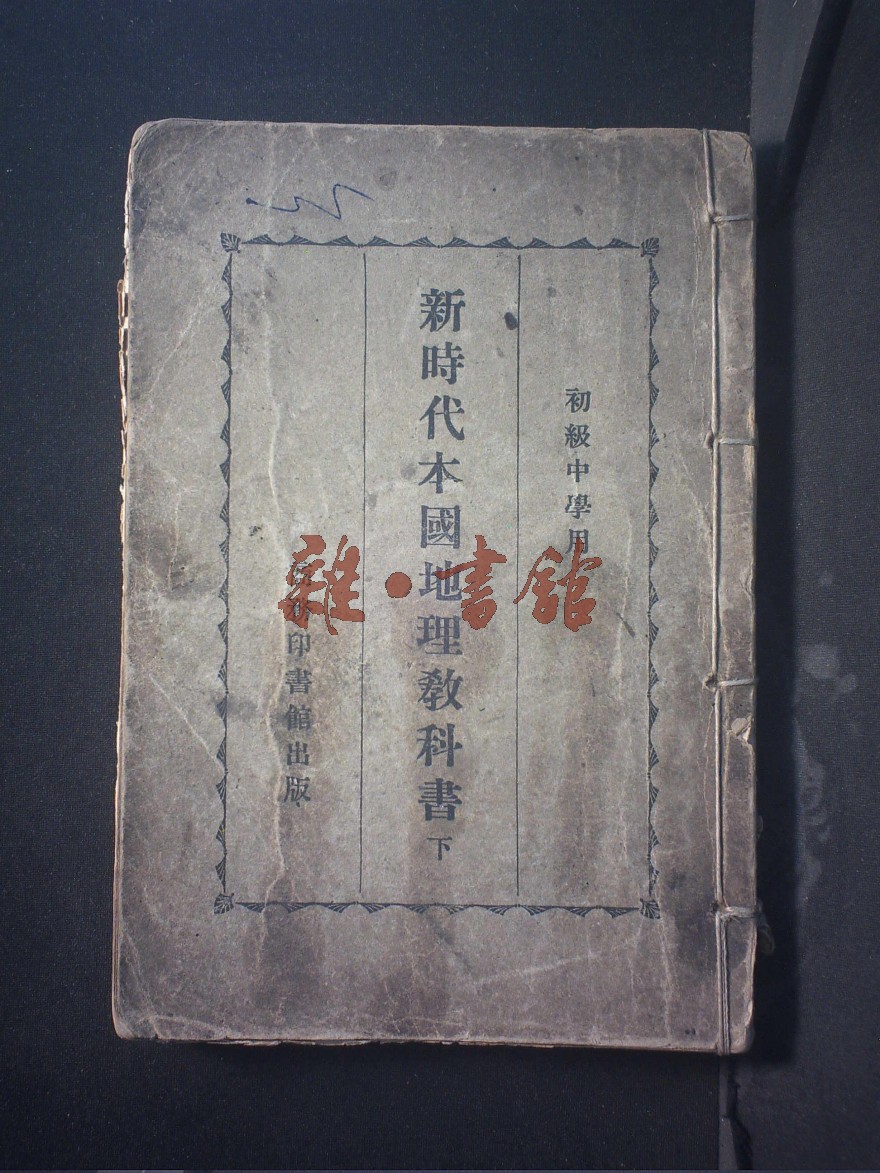 初級中學用
新時代本國地理敎科書 下
商務印書館出版
雜·書館